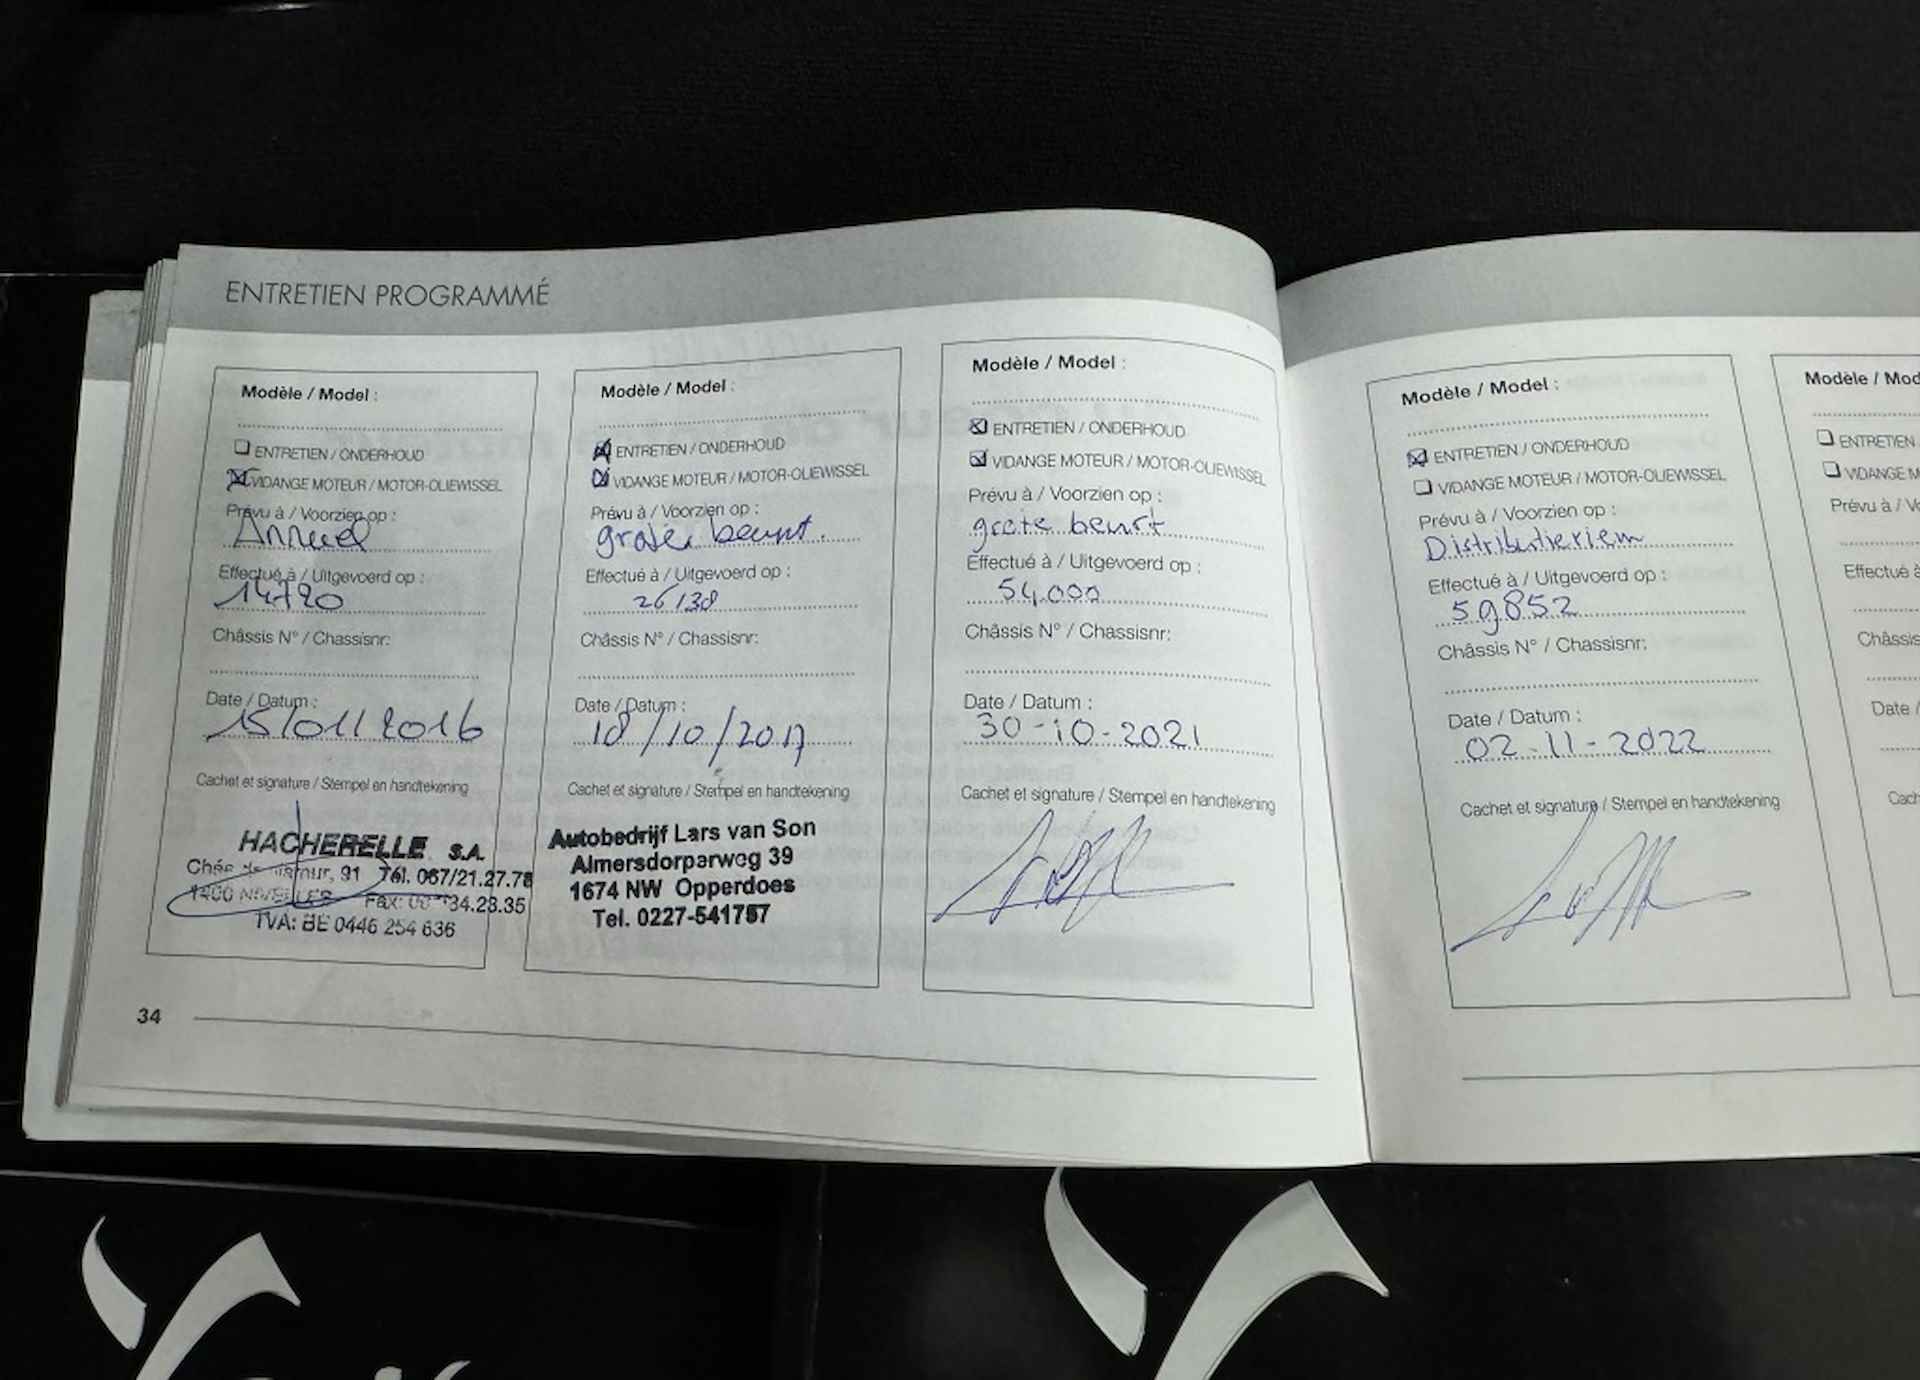 ENTRETIEN PROGRAMMÉ
Modèle / Model :
ENTRETIEN / ONDERHOUD
VIDANGE MOTEUR / MOTOR-OLIEWISSEL
Prévu à / Voorzien op :
Annuel
Effectué à / Uitgevoerd op :
14720
Châssis N° / Chassisnr:
Date / Datum :
15/01/2016
Cachet et signature / Stempel en handtekening
HACHERELLE S.A.
91 Tél. 067/21.27.78
1400 NIVELLES Fax: 34.23.35
TVA: BE 0446 254 636
Modèle / Model :
ENTRETIEN / ONDERHOUD
VIDANGE MOTEUR / MOTOR-OLIEWISSEL
Prévu à / Voorzien op :
grote beurt.
Effectué à / Uitgevoerd op :
26138
Châssis N° / Chassisnr:
Date / Datum :
18/10/2017
Cachet et signature / Stempel en handtekening
Autobedrijf Lars van Son
Almersdorperweg 39
1674 NW Opperdoes
Tel. 0227-541757
Modèle / Model :
ENTRETIEN / ONDERHOUD
VIDANGE MOTEUR / MOTOR-OLIEWISSEL
Prévu à / Voorzien op :
grote beurt
Effectué à / Uitgevoerd op :
54.000
Châssis N° / Chassisnr:
Date / Datum :
30-10-2021
Cachet et signature / Stempel en handtekening
34
Modèle / Model :
ENTRETIEN / ONDERHOUD
VIDANGE MOTEUR / MOTOR-OLIEWISSEL
Prévu à / Voorzien op :
Distributieriem
Effectué à / Uitgevoerd op :
59852
Châssis N° / Chassisnr:
Date / Datum :
02-11-2022
Cachet et signature / Stempel en handtekening
Modèle / Mod
ENTRETIEN
VIDANGE M
Prévu à / Vo
Effectué à
Châssis
Date /
Cach